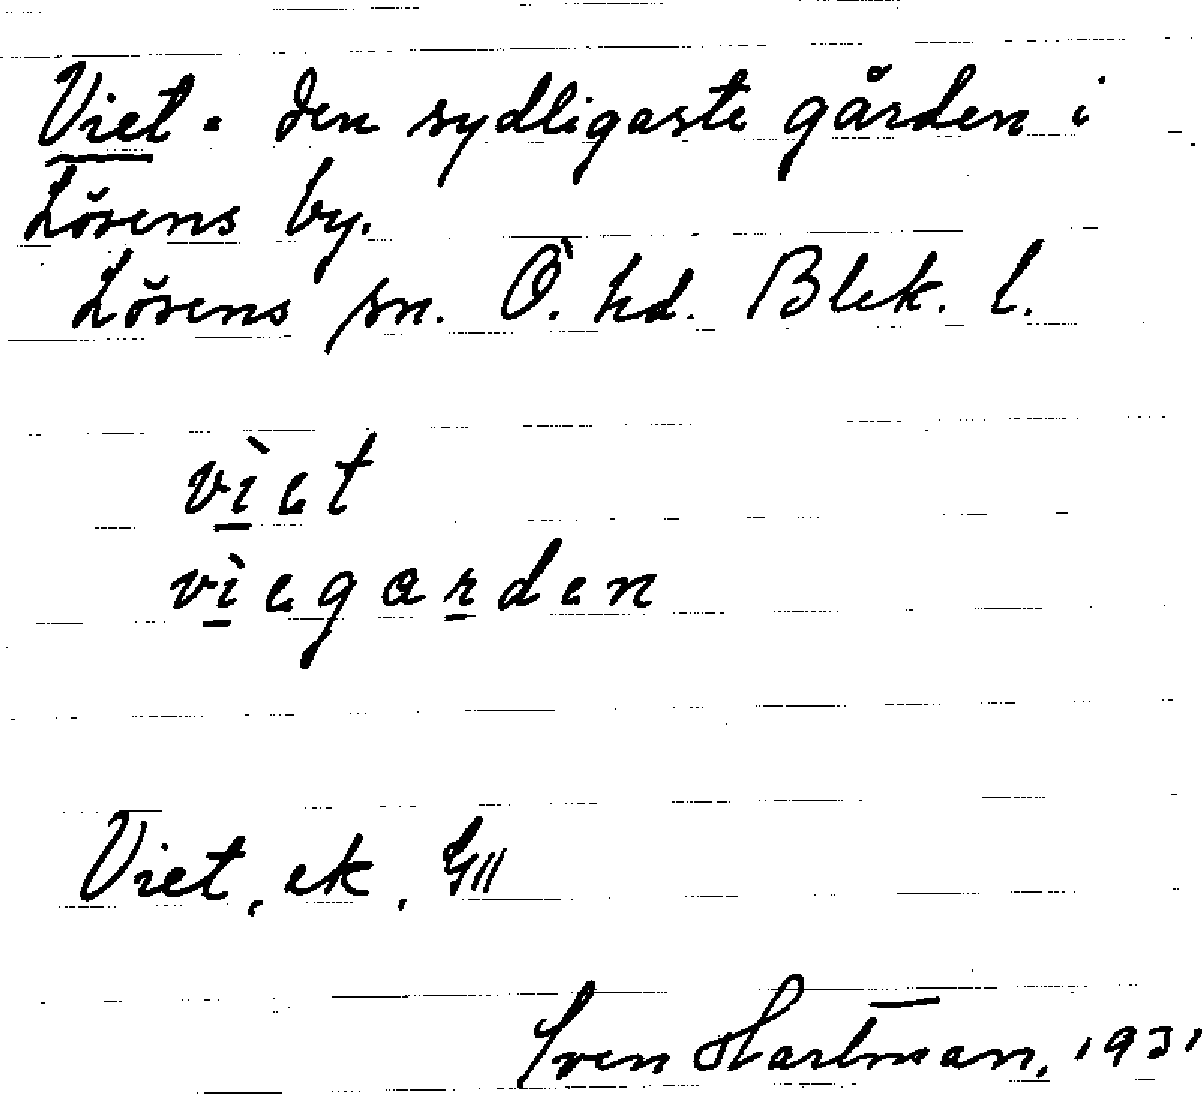 Viet. den sydligaste gården i
Lösens by.
Lösens sn. Ö. hd. Blek. l.
vìet
vìegarden
Viet, ek,
Sven Hartman, 1931